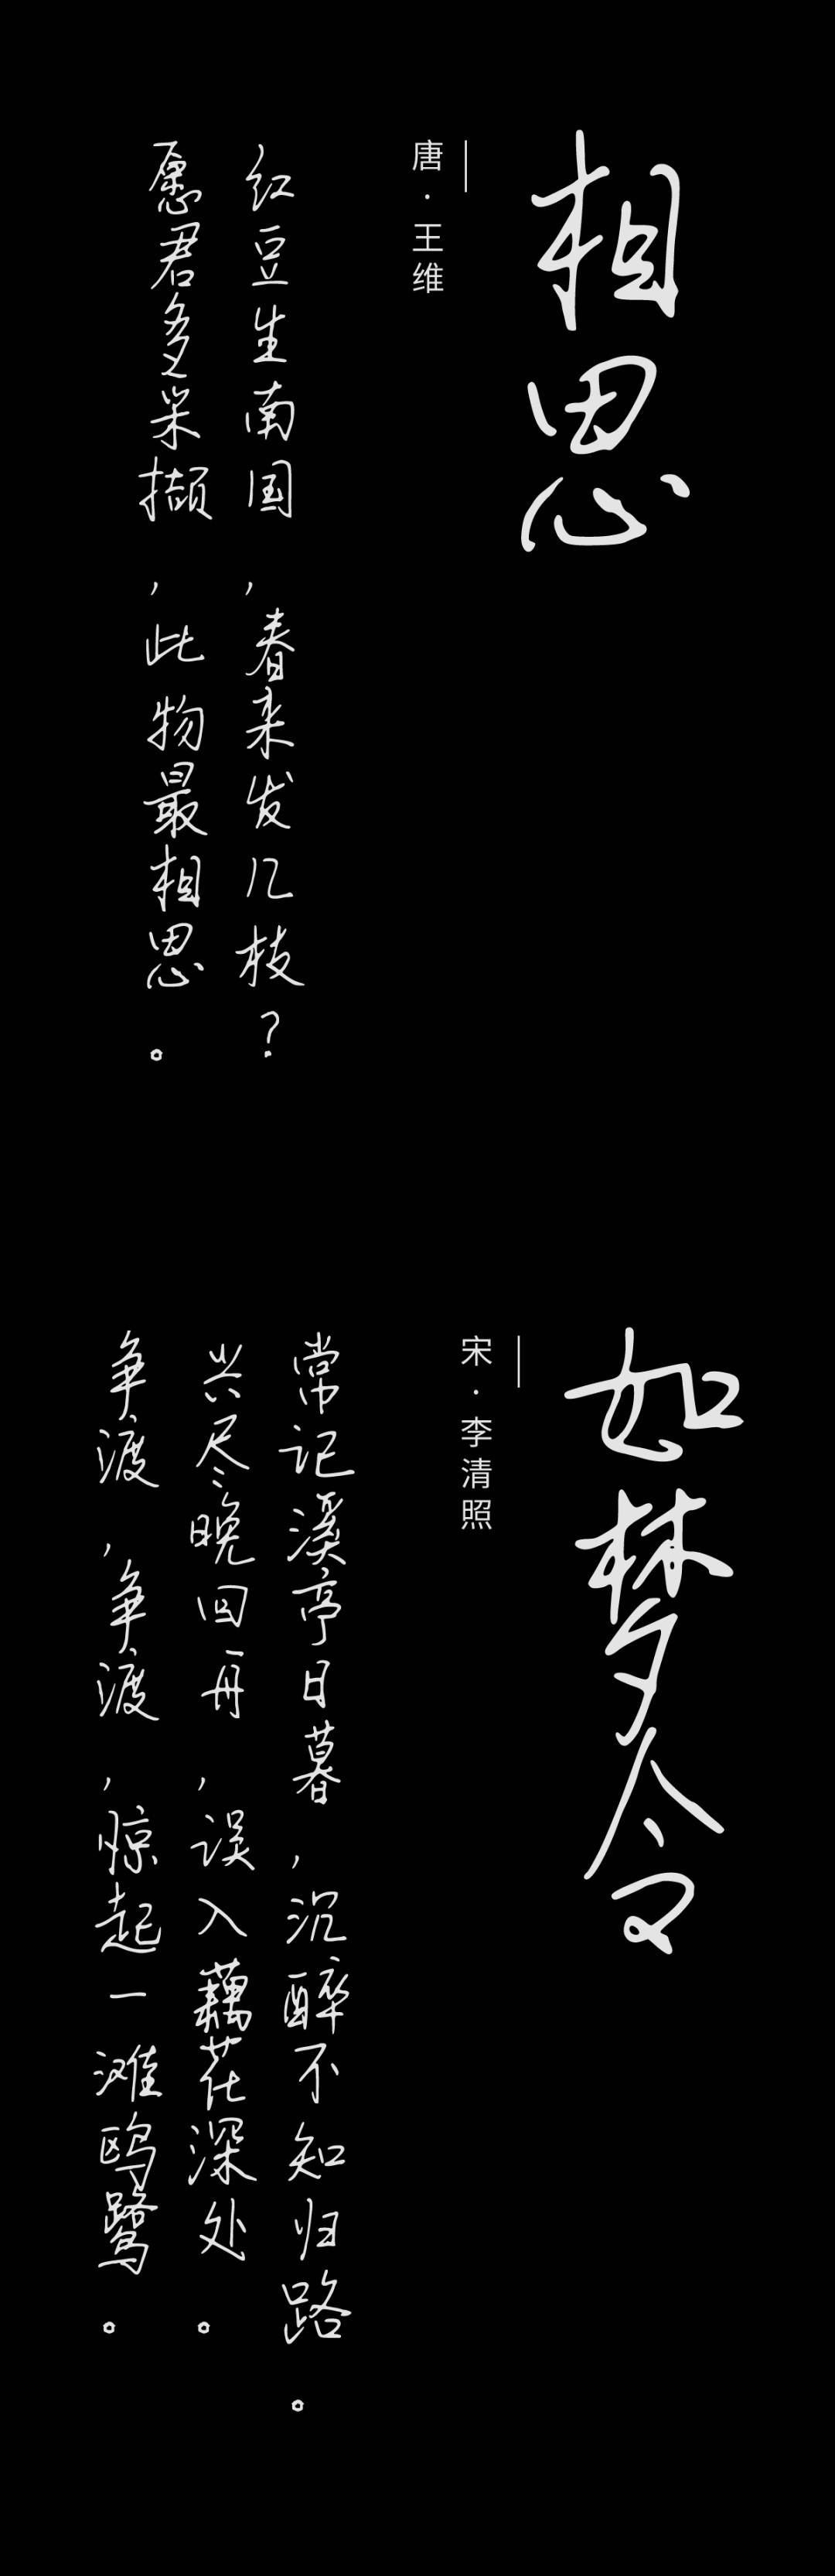 相思
唐·王维
红豆生南国,春来发几枝?
愿君多采撷,此物最相思。
如梦令
宋·李清照
常记溪亭日暮,沉醉不知归路。
兴尽晚回舟,误入藕花深处。
争渡,争渡,惊起一滩鸥鹭。